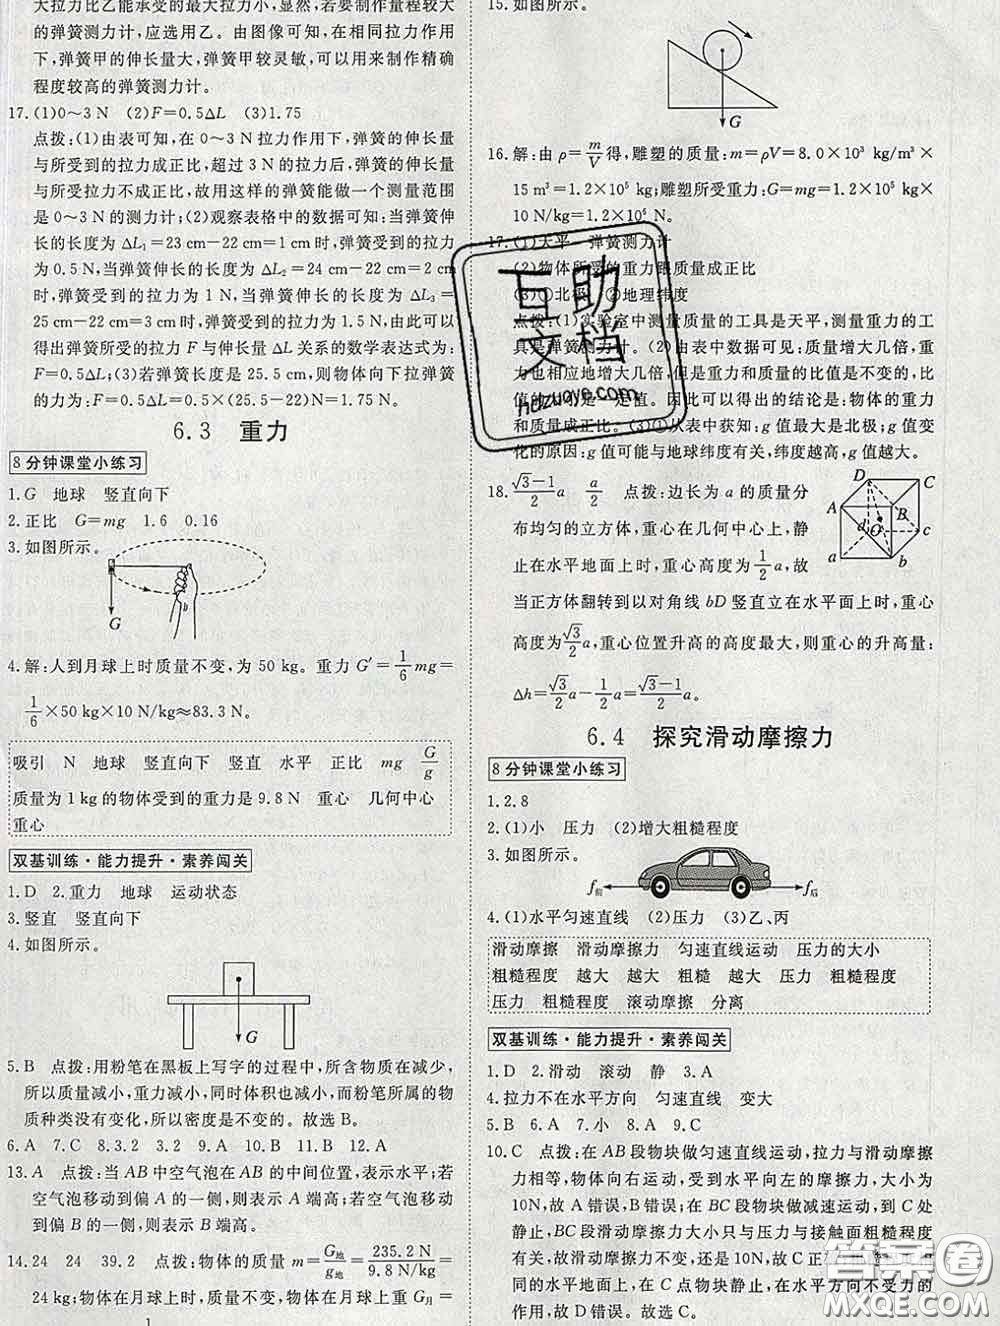 大拉力比乙能承受的最大拉力小,显然,若要制作量程较大
的弹簧测力计,应选用乙。由图像可知,在相同拉力作用
下,弹簧甲的伸长量大,弹簧甲较灵敏,可以用来制作精确
程度较高的弹簧测力计。
17.(1)0～3 N (2)F=0.5ΔL (3)1.75
点拨:(1)由表可知,在 0～3 N拉力作用下,弹簧的伸长量
与所受到的拉力成正比,超过 3 N的拉力后,弹簧的伸长量
与所受拉力不成正比,故用这样的弹簧能做一个测量范围
是 0～3 N的测力计;(2)观察表格中的数据可知:当弹簧伸
长的长度为 ΔL₁=23 cm-22 cm=1 cm时,弹簧受到的拉力
为 0.5 N,当弹簧伸长的长度为 ΔL₂=24 cm-22 cm=2 cm
时,弹簧受到的拉力为 1 N,当弹簧伸长的长度为 ΔL₃=
25 cm-22 cm=3 cm时,弹簧受到的拉力为 1.5 N,由此可以
得出弹簧所受的拉力 F与伸长量 ΔL 关系的数学表达式为:
F=0.5ΔL;(3)若弹簧长度是 25.5 cm,则物体向下拉弹簧
的力为:F=0.5ΔL=0.5×(25.5-22)N=1.75 N。
6.3 重力
8分钟课堂小练习
1.G 地球 竖直向下
2.正比 G=mg 1.6 0.16
3.如图所示。
G
4.解:人到月球上时质量不变,为 50 kg。重力 G′=1/6 mg=
1/6×50 kg×10 N/kg≈83.3 N。
吸引 N 地球 竖直向下 竖直 水平 正比 mg G/g
质量为 1 kg的物体受到的重力是 9.8 N 重心 几何中心
重心
双基训练·能力提升·素养闯关
1.D 2.重力 地球 运动状态
3.竖直 竖直向下
4.如图所示。
G
5.B 点拨:用粉笔在黑板上写字的过程中,所含物质在减少,
所以质量减小,重力减小,同时体积也减小,而粉笔所属的物
质种类没有变化,所以密度是不变的。故选 B。
6.A 7.C 8.3.2 3.2 9.C 10.B 11.B 12.A
13.A 点拨:当 AB中空气泡在 AB的中间位置,表示水平;若
空气泡移动到偏 A 的一侧,则表示 A 端高;若空气泡移动
到偏 B 的一侧,则表示 B 端高。
14.24 24 39.2 点拨:物体的质量 m=G地/g地=235.2 N/9.8 N/kg=
24 kg;物体在月球上时,质量不变,物体在月球上重 G月=
1
15.如图所示。
G
16.解:由 ρ=m/V得,雕塑的质量:m=ρV=8.0×10³ kg/m³×
15 m³=1.2×10⁵ kg;雕塑所受重力:G=mg=1.2×10⁵ kg×
10 N/kg=1.2×10⁶ N。
17.(1)天平 弹簧测力计
(2)物体所受的重力跟质量成正比
(3)①北极 ②地理纬度
点拨:(1)实验室中测量质量的工具是天平,测量重力的工
具是弹簧测力计。(2)由表中数据可见:质量增大几倍,
重力也相应地增大几倍,但是重力和质量的比值是不变的,
比值的大小是一定值。因此可以得出的结论是:物体的重力
和质量成正比。(3)①从表中获知:g值最大是北极;g值的
变化的原因:g值可能与地球纬度有关,纬度越高,g 值越大。
18.(√3-1)/2 a a/2 点拨:边长为 a 的质量分
布均匀的立方体,重心在几何中心上,静
止在水平地面上时,重心高度为 1/2 a,故
当正方体翻转到以对角线 bD 竖直立在水平面上时,重心
高度为 √3/2 a,重心位置升高的高度最大,则重心的升高量:
Δh=√3/2 a-1/2 a=(√3-1)/2 a。
D C A B d O c a b
6.4 探究滑动摩擦力
8分钟课堂小练习
1.2.8
2.(1)小 压力 (2)增大粗糙程度
3.如图所示。
f前 f后
4.(1)水平匀速直线 (2)压力 (3)乙、丙
滑动摩擦 滑动摩擦力 匀速直线运动 压力的大小
粗糙程度 越大 越大 粗糙 越大 压力 粗糙程度
压力 粗糙程度 滚动摩擦 分离
双基训练·能力提升·素养闯关
1.D 2.滑动 滚动 静 3.A
4.拉力不在水平方向 匀速直线 变大
5.B 6.A 7.小 8.A 9.C
10.C 点拨:在 AB段物块做匀速直线运动,拉力与滑动摩擦
力相等,物体向右运动,受到水平向左的摩擦力,大小为
10N,故 A 错误,B 错误;在 BC 段物块做减速运动,到 C 处
静止,BC 段滑动摩擦力大小只与压力与接触面粗糙程度
有关,故滑动摩擦力不变,还是 10N,故 C 正
同的水平地面上,在 C 点物块静止,在水平方向不受力的
作用,故 D 错误。故选 C。
互助文档
hdzuoye.com
答案圈
MXQE.COM